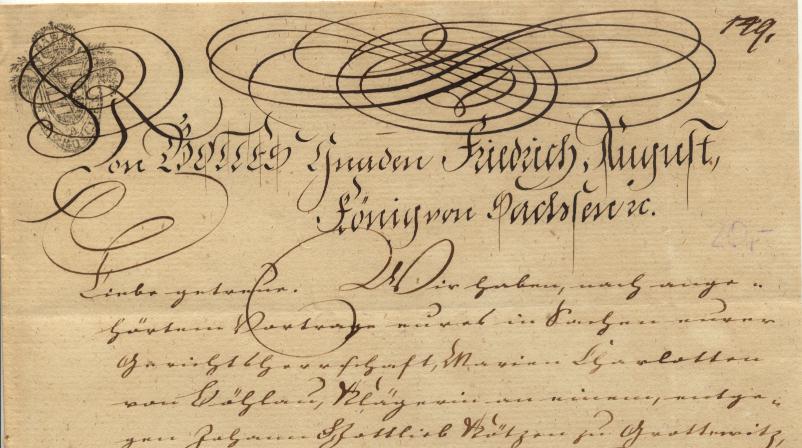 149.
Von GOTTES Gnaden Friedrich August,
König von Sachsen ꝛc.
20,-
Liebe getreue. Wir haben, nach ange-
hörtem Vortrage eures in Sachen eurer
Gerichtsherrschaft, Marien Charlotten
von Böhlau, Klägerin an einem, entge-
gen Johann Gottlieb Kötzen zu Grottewitz,